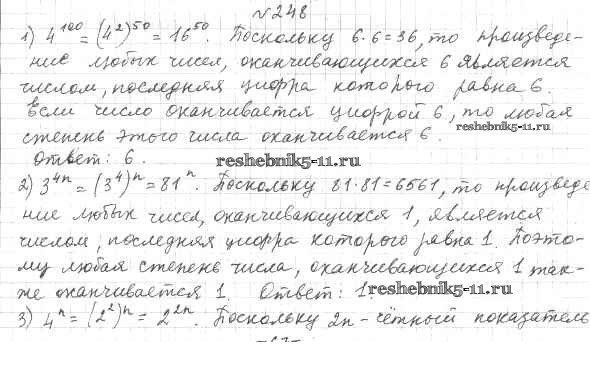 №248
1) 4¹⁰⁰ = (4²)⁵⁰ = 16⁵⁰. Поскольку 6·6=36, то произведе-
ние любых чисел, оканчивающихся 6 является
числом, последняя цифра которого равна 6.
Если число оканчивается цифрой 6, то любая
степень этого числа оканчивается 6.
reshebnik5-11.ru
Ответ: 6.
reshebnik5-11.ru
2) 3⁴ⁿ = (3⁴)ⁿ = 81ⁿ. Поскольку 81·81=6561, то произведе
ние любых чисел, оканчивающихся 1, является
числом, последняя цифра которого равна 1. Поэто-
му любая степень числа, оканчивающихся 1 так-
же оканчивается 1 Ответ: 1.
reshebnik5-11.ru
3) 4ⁿ = (2²)ⁿ = 2²ⁿ. Поскольку 2n - чётный показатель